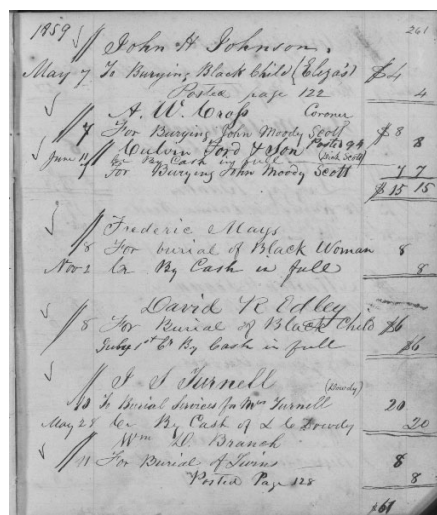 1859 261
John H Johnson.
May 7 To Burying Black Child (Eliza's) $4
Posted page 122 4
A. W. Cross Coroner
7 For Burying John Moody Scott $8 8
Calvin Ford & Son Posted 94
June 11 Cr By Cash in full (Dick Scott)
7 For Burying John Moody Scott 7 7
$15 15
Frederic Mays
8 For burial of Black Woman 8
Nov 2 Cr By Cash in full 8
David R Edley
8 For Burial of Black Child $6
1st Cr By Cash in full $6
J S Turnell (Dowdy)
10 To Burial Services for Mrs Turnell 20
May 28 Cr By Cash of L C Dowdy 20
Wm D. Branch
11 For Burial of Twins 8
Posted Page 128 8
$61